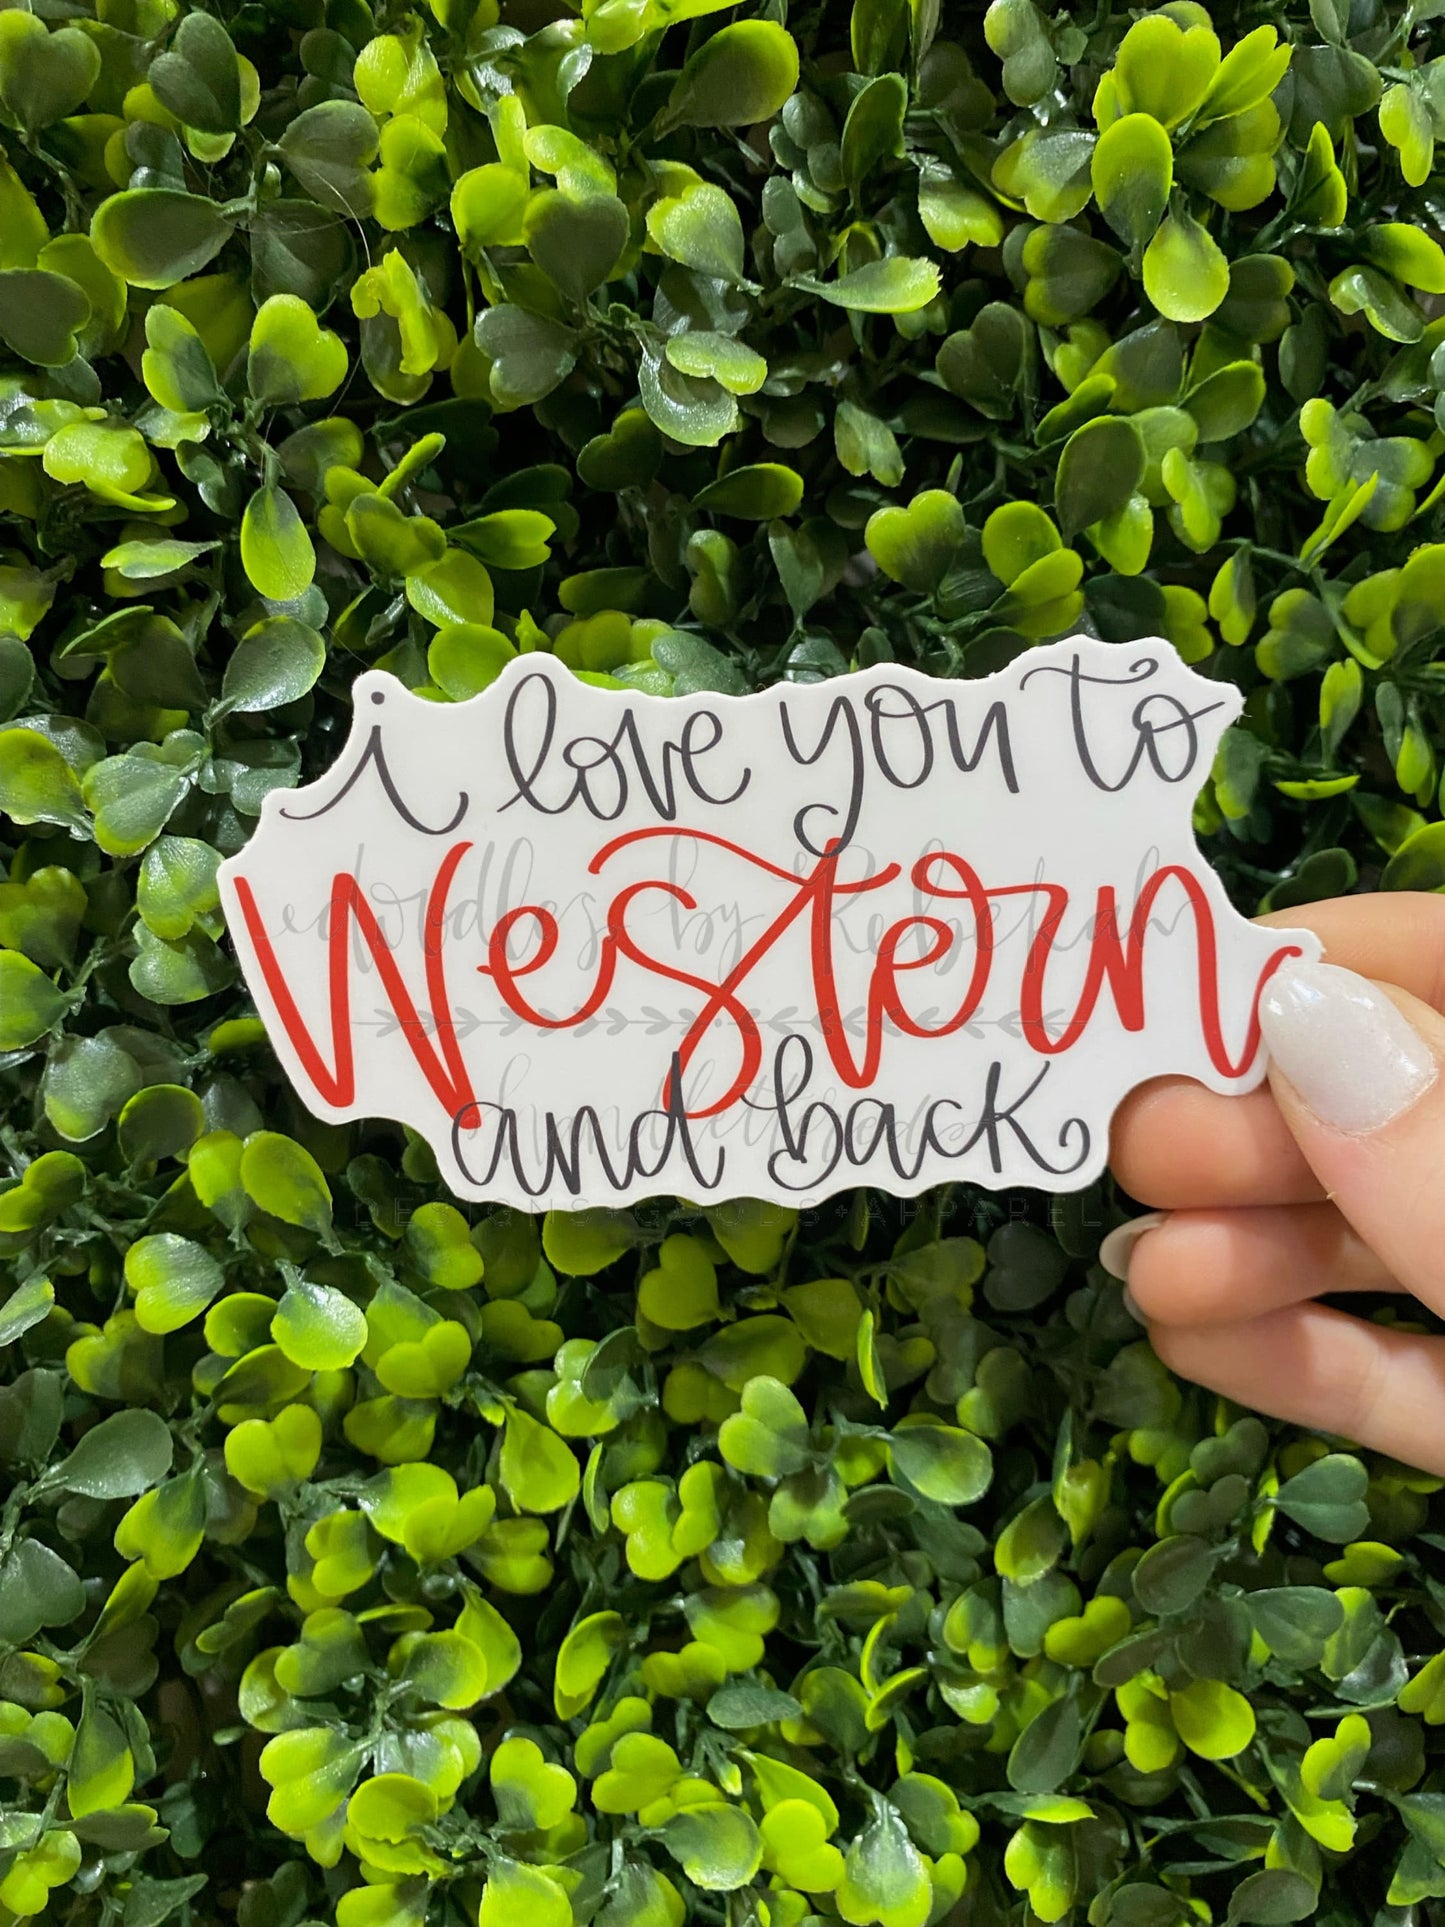 i love you to
Western
and back
doodles by Rebekah
handlettered
DESIGNS+GOODS+APPAREL